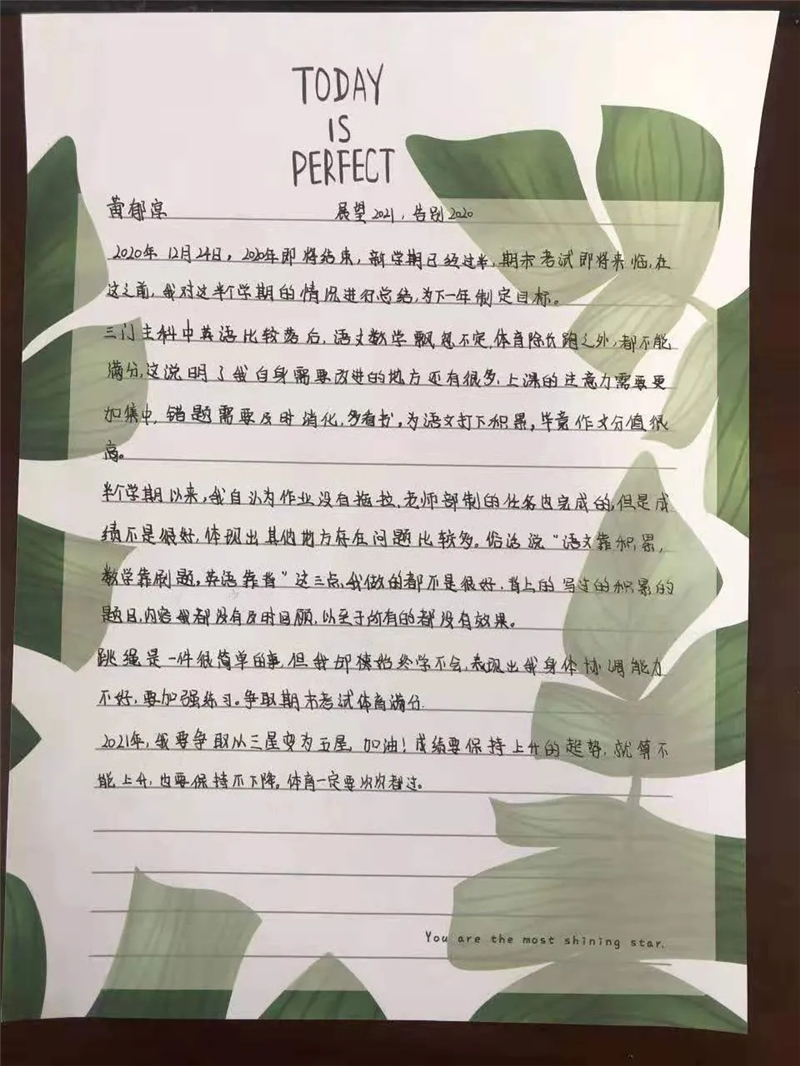 TODAY
IS
PERFECT
黄郁淳 展望2021,告别2020
2020年12月24日,2020年即将结束,新学期已经过半,期末考试即将来临,在
这之前,我对这半个学期的情况进行总结,为下一年制定目标。
三门主科中英语比较落后,语文数学飘忽不定,体育除长跑之外,都不能
满分,这说明了我自身需要改进的地方还有很多,上课的注意力需要更
加集中,错题需要及时消化,多看书,为语文打下积累,毕竟作文分值很
高。
半个学期以来,我自认为作业没有拖拉,老师部制的任务也完成的,但是成
绩不是很好,体现出其他地方存在问题比较多。俗话说“语文靠积累,
数学靠刷题,英语靠背”这三点,我做的都不是很好,背上的写过的积累的
题目,内容我都没有及时回顾,以至于所有的都没有效果。
跳绳是一件很简单的事,但我却模始终学不会,表现出我身体协调能力
不好,要加强练习。争取期末考试体育满分.
2021年,我要争取从三星变为五星,加油!成绩要保持上升的趋势,就算不
能上升,也要保持不下降。体育一定要次次都过。
You are the most shining star.